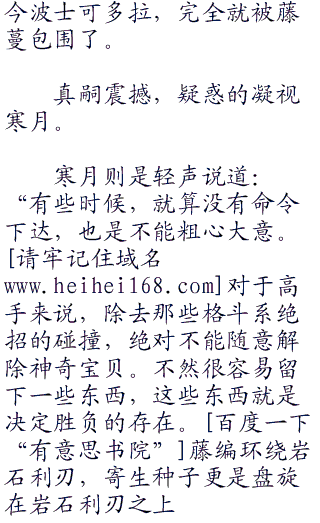 今波士可多拉，完全就被藤
蔓包围了。
真嗣震撼，疑惑的凝视
寒月。
寒月则是轻声说道：
“有些时候，就算没有命令
下达，也是不能粗心大意。
[请牢记住域名
www.heihei168.com]对于高
手来说，除去那些格斗系绝
招的碰撞，绝对不能随意解
除神奇宝贝。不然很容易留
下一些东西，这些东西就是
决定胜负的存在。[百度一下
“有意思书院”]藤编环绕岩
石利刃，寄生种子更是盘旋
在岩石利刃之上